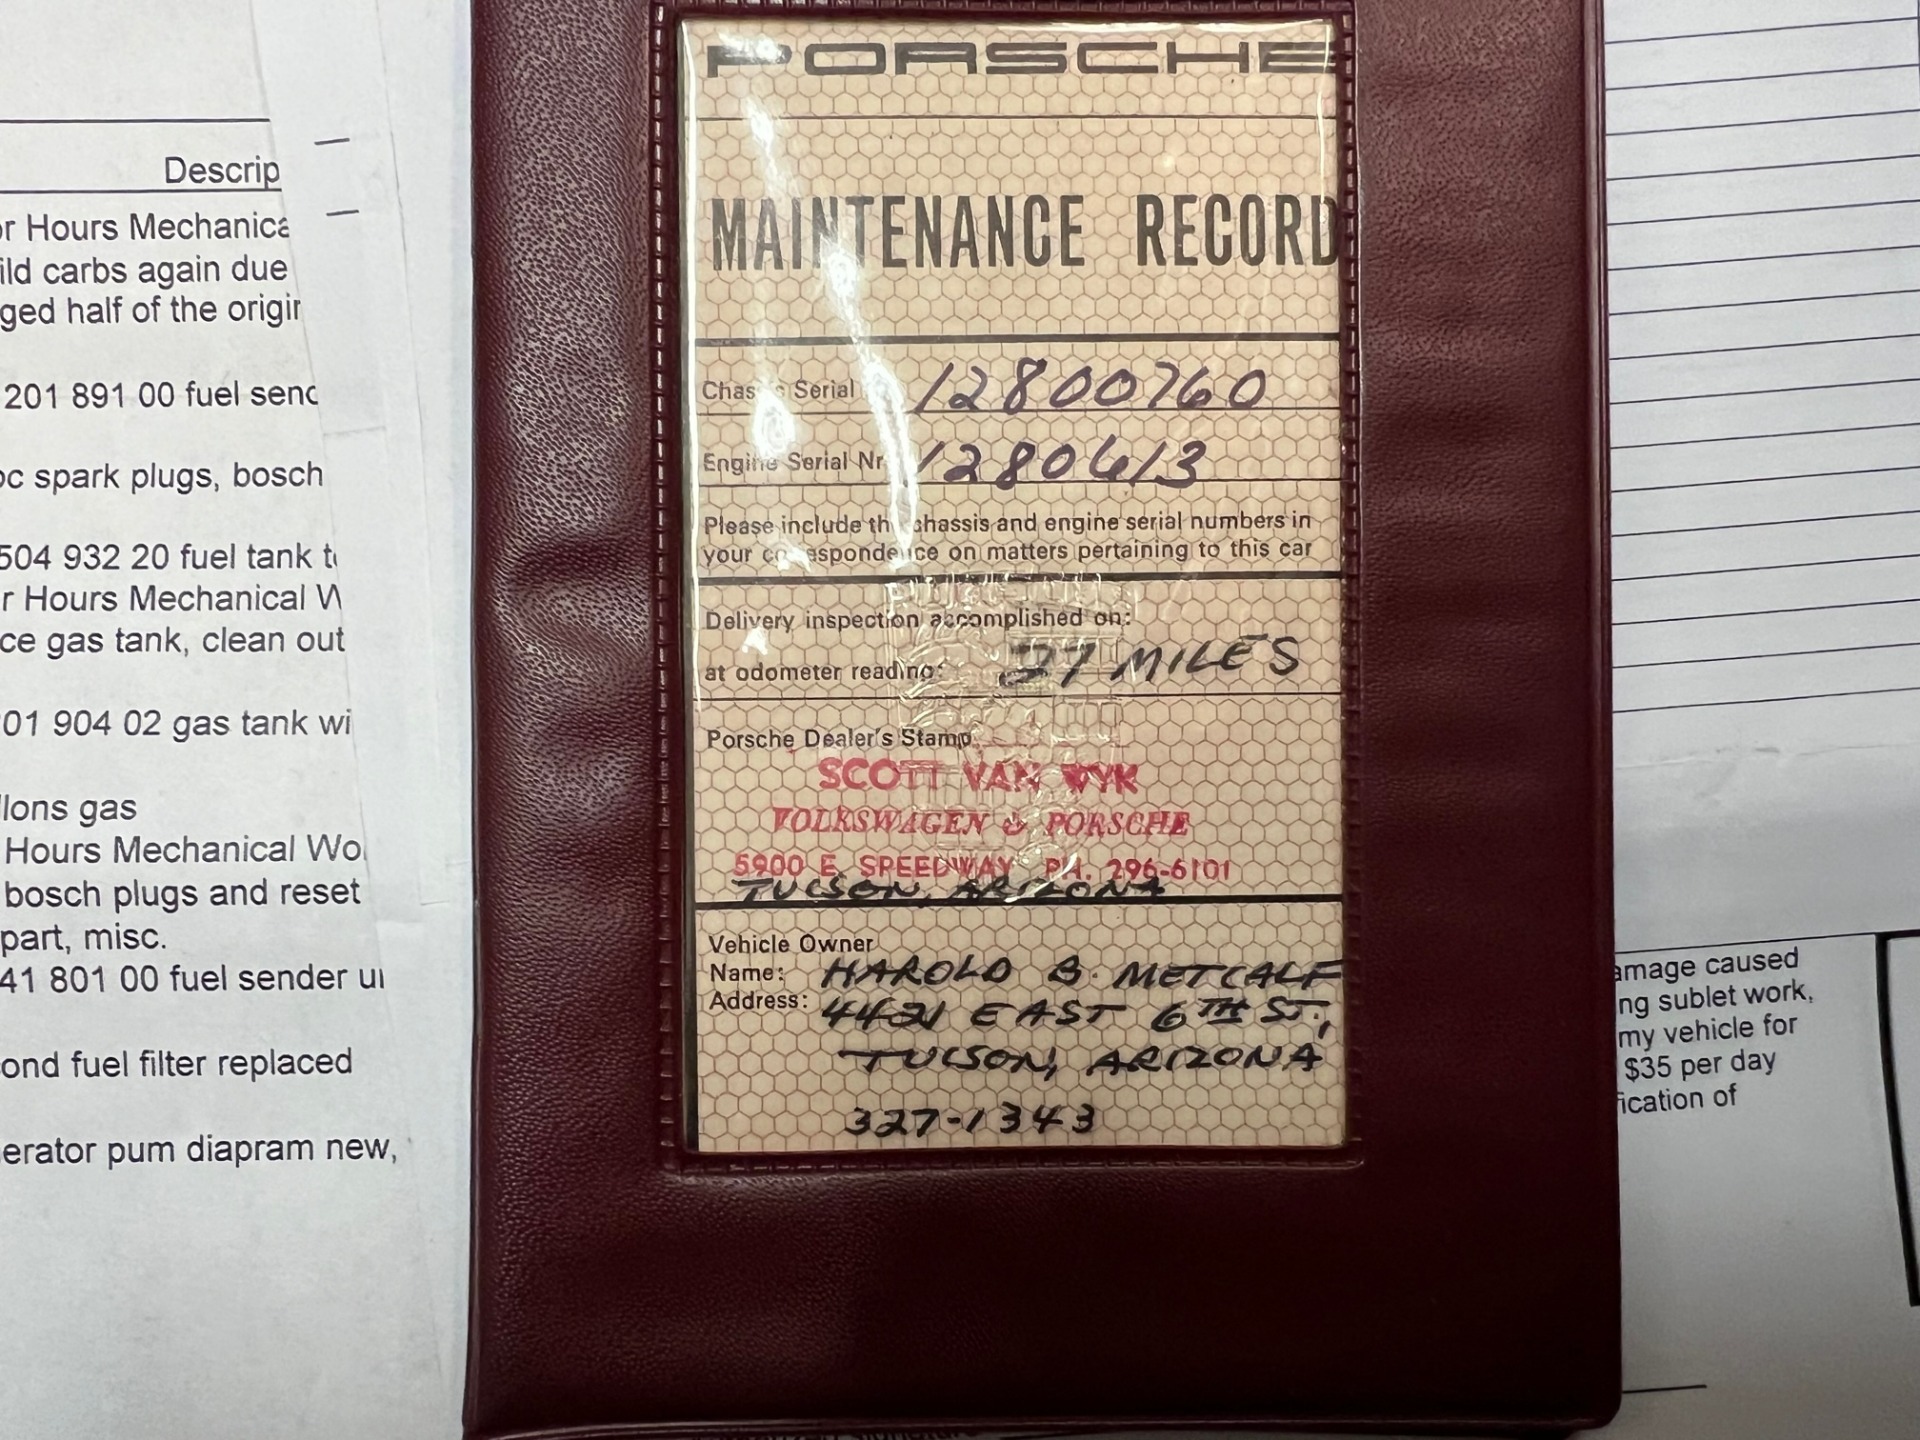 PORSCHE
MAINTENANCE RECORD
Chassis Serial 12800760
Engine Serial Nr 1280613
Please include the chassis and engine serial numbers in
your correspondence on matters pertaining to this car
Delivery inspection accomplished on:
at odometer reading: 27 MILES
Porsche Dealer's Stamp
SCOTT VAN WYK
VOLKSWAGEN & PORSCHE
5900 E. SPEEDWAY PH. 296-6101
TUCSON, ARIZONA
Vehicle Owner
Name: HAROLD B. METCALF
Address: 4421 EAST 6TH ST.,
TUCSON, ARIZONA
327-1343
Descrip
r Hours Mechanica
ild carbs again due
ged half of the origin
201 891 00 fuel send
oc spark plugs, bosch
504 932 20 fuel tank
r Hours Mechanical W
ce gas tank, clean out
01 904 02 gas tank wi
llons gas
Hours Mechanical Wo
bosch plugs and reset
part, misc.
41 801 00 fuel sender
ond fuel filter replaced
erator pum diapram new,
amage caused
ng sublet work,
my vehicle for
$35 per day
ication of